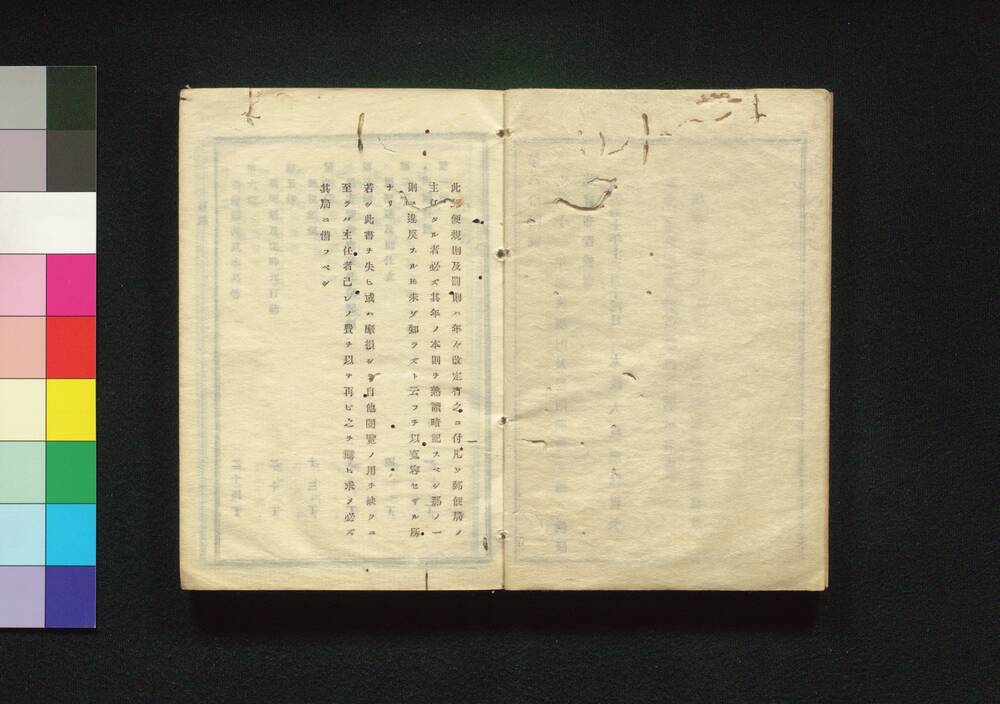 此郵便規則及罰則ハ年々改定有之ニ付凡ソ郵便局ノ
主任タル者必ズ其年ノ本則ヲ熟讀暗記スベシ那ノ一
則ニ違戻スルヒ未ダ知ラズト云フヲ以寛容セザル所
ナリ
若シ此書ヲ失ヒ或ハ磨損シテ自他閲覧ノ用ヲ缺クニ
至ラバ主任者己レノ費ヲ以テ再ビ之ヲ購ヒ求メ必ズ
其局ニ備フベシ